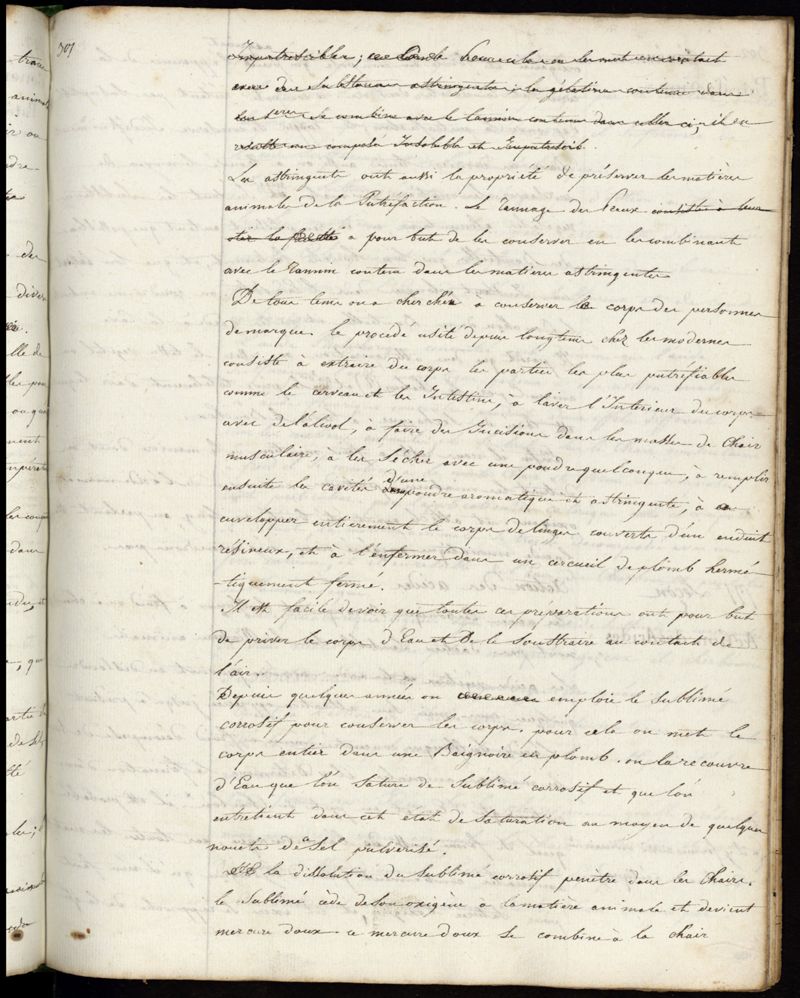 301
Imputrescibles; les Peaux en les met en contact
avec des substances astringentes; la gélatine contenue dans
les 1eres se combine avec le tannin contenu dans celles ci, il en
resulte un composé Insoluble et Imputrescib.
Les astringents ont aussi la propriété de préserver les matières
animales de la Putréfaction. Le Tannage des Peaux consiste à leur
oter la a pour but de les conserver en les combinant
avec le Tannin contenu dans les matières astringentes
De tous tems on a cherché a conserver le corps des personnes
de marque. le procédé usité depuis longtems chez les modernes
consiste à extraire du corps les parties les plus putréfiables
comme le cerveau et les Intestins, à laver l'Interieur du corps
avec de l'alcool, à faire des Incisions dans les masses de Chair
musculaire, à les sécher avec une poudre quelconque, à remplir
ensuite les cavités d'une poudre aromatique et astringente, à
envelopper entierement le corps de linges couverts d'un enduit
résineux, et à l'enfermer dans un cercueil de plomb hermé
-tiquement fermé.
Il est facile de voir que toutes ces preparations ont pour but
de priver le corps d'Eau et De la Soustraire au contact de
l'air.
Depuis quelques années on emploie le sublimé
corrosif pour conserver les corps. pour cela on met le
corps entier dans une Baignoire en plomb. on la recouvre
d'Eau que l'on sature de Sublimé corrosif et que l'on
entretient dans cet état de saturation au moyen de quelques
nouets de Sel pulverisé.
la dissolution du sublimé corrosif penètre dans les chairs.
le Sublimé cède de son oxigène a la matière animale et devient
mercure doux. ce mercure doux se combine à la chair